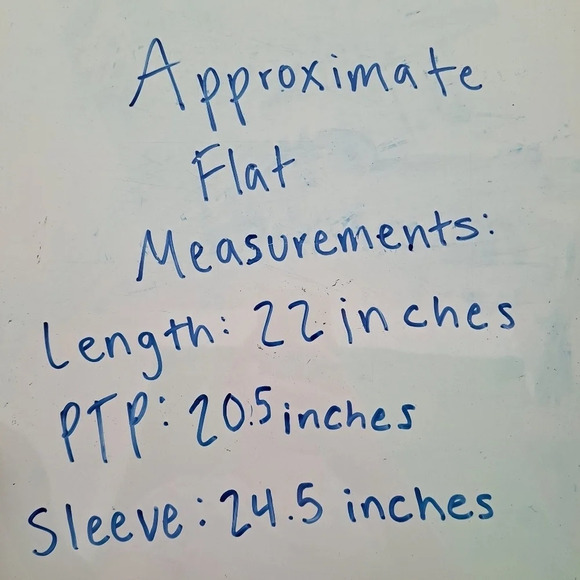 Approximate
Flat
Measurements:
Length: 22 inches
PTP: 20.5 inches
Sleeve: 24.5 inches